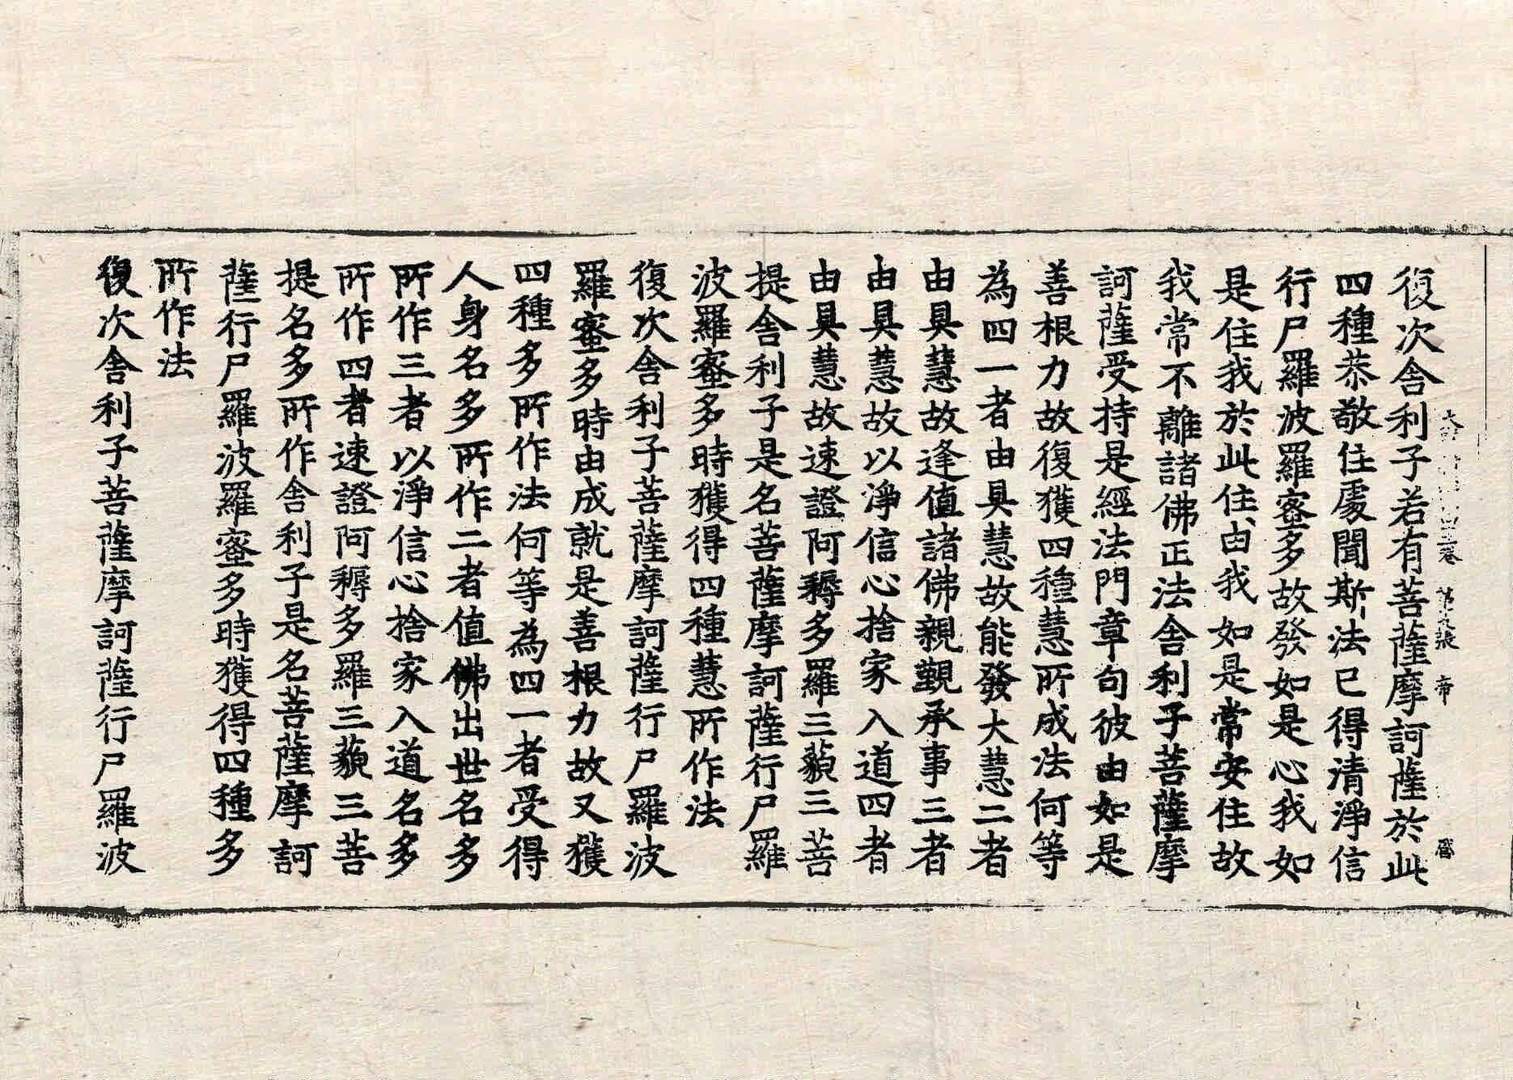 復次舍利子若有菩薩摩訶薩於此
四種恭敬住處聞斯法已得清淨信
行尸羅波羅蜜多故發如是心我如
是住我於此住由我如是常安住故
我常不離諸佛正法舍利子菩薩摩
訶薩受持是經法門章句彼由如是
善根力故復獲四種慧所成法何等
為四一者由具慧故能發大慧二者
由具慧故逢值諸佛親覲承事三者
由具慧故以淨信心捨家入道四者
由具慧故速證阿耨多羅三藐三菩
提舍利子是名菩薩摩訶薩行尸羅
波羅蜜多時獲得四種慧所作法
復次舍利子菩薩摩訶薩行尸羅波
羅蜜多時由成就是善根力故又獲
四種多所作法何等為四一者受得
人身名多所作二者值佛出世名多
所作三者以淨信心捨家入道名多
所作四者速證阿耨多羅三藐三菩
提名多所作舍利子是名菩薩摩訶
薩行尸羅波羅蜜多時獲得四種多
所作法
復次舍利子菩薩摩訶薩行尸羅波